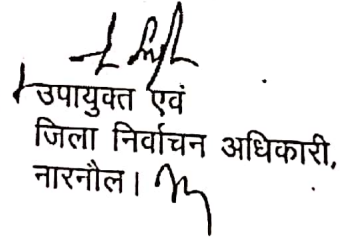 उपायुक्त एवं
जिला निर्वाचन अधिकारी,
नारनौल।